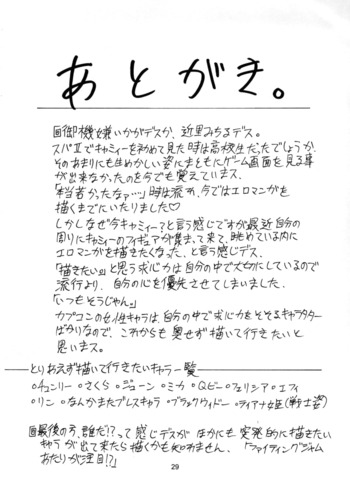 あとがき。
回御機嫌いかがデスか、近里みちるデス。
スパⅡでキャミィーを初めて見た時は高校生だったでしょうか、
そのあまりにも生めかしい姿にまともにゲーム画面を見る事
が出来なかったのを今でも覚えていまス。
「本当若かったなァ…」時は流れ、今ではエロマンガを
描くまでにいたりました♡
しかしなぜ今キャミィー?と言う感じですが最近自分の
周りにキャミィーのフィギュアが集まって来て、眺めている内に
エロマンガを描きたくなった、と言う感じデス。
「描きたい」と思う求心力は自分の中で大切にしているので
流行より、自分の心を優先させてしまいました。
「いつもそうじゃん。」
カプコンの女性キャラは、自分の中で求心力をそそるキャラクター
ばかりなので、これからも臭せず描いて行きたいと
思いまス。
とりあえず描いて行きたいキャラ一覧
○チュンリー ○さくら ○ジューン ○ミカ ○Qビー ○フェリシア ○エフィ
○リン ○なんかまたプレスキャラ ○ブラックウィドー ○ディアナ姫(戦士姿)
回最後の方、誰だ!?って感じデスが ほかにも突発的に描きたい
キャラが出て来たら描くかも知れません、「ファイティングジャム
あたりが注目!?」
29